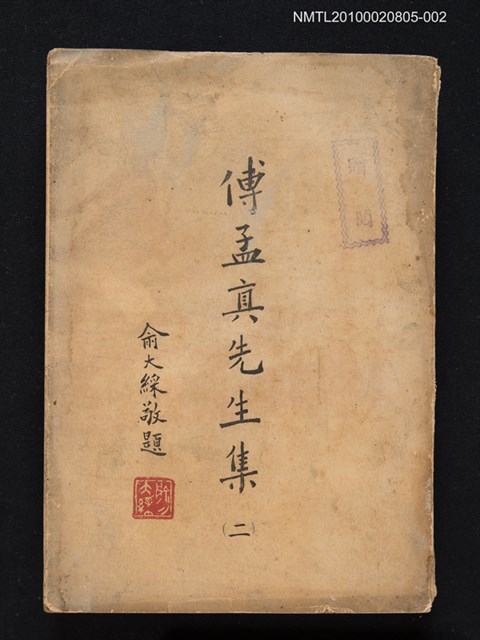 NMTL20100020805-002
傅孟真先生集
(二)
俞大綵敬題